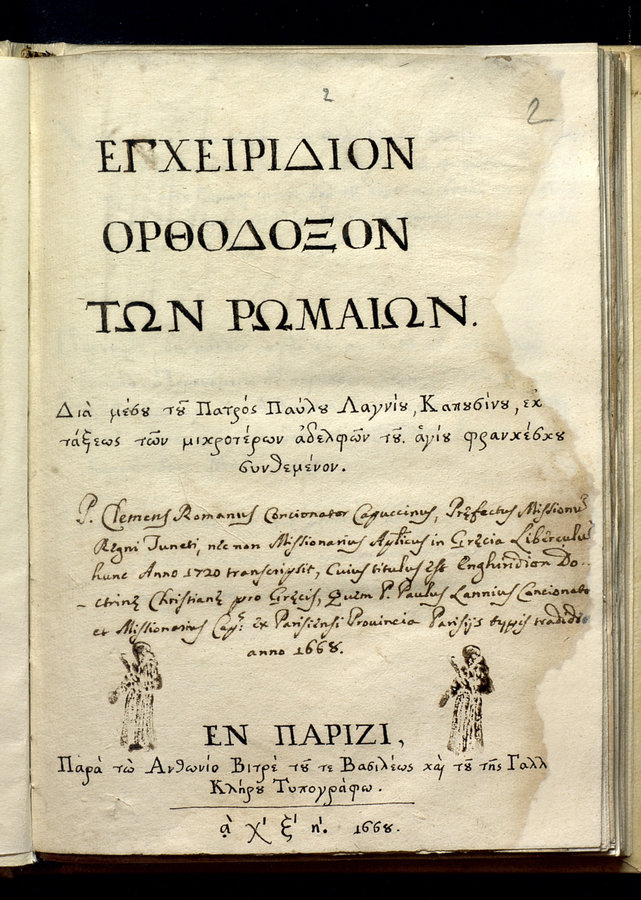 2 2
ΕΓΧΕΙΡΙΔΙΟΝ
ΟΡΘΟΔΟΞΟΝ
ΤΩΝ ΡΩΜΑΙΩΝ.
Διὰ μέσου τοῦ Πατρός Παύλου Λαγνίου, Καπυσίνου, ἐκ
τάξεως τῶν μικροτέρων ἀδελφῶν τοῦ ἁγίου φρανκέσκου
συνθεμένον.
P. Clemens Romanus Concionator Capuccinus, Præfectus Missionū
Regni Tuneti, nec non Missionarius Aplicus in Græcia Libērculū
hunc Anno 1720 transcripsit, Cuius titulus est Enghiridion Do..
-ctrinæ Christianæ pro Græcis, Quem P. Paulus Lannius Concionato
et Missionarius Capⁿ: ex Parisiensi Provincia Parisijs typis tradidi
anno 1668.
ΕΝ ΠΑΡΙΖΙ,
Παρὰ τῶ Ἀνθωνίο Βιτρὲ τοῦ τε Βασιλέως καὶ τοῦ τῆς Γαλλ
Κλήρου Τυπογράφω.
ᾳ χ' ξ' η'. 1668.